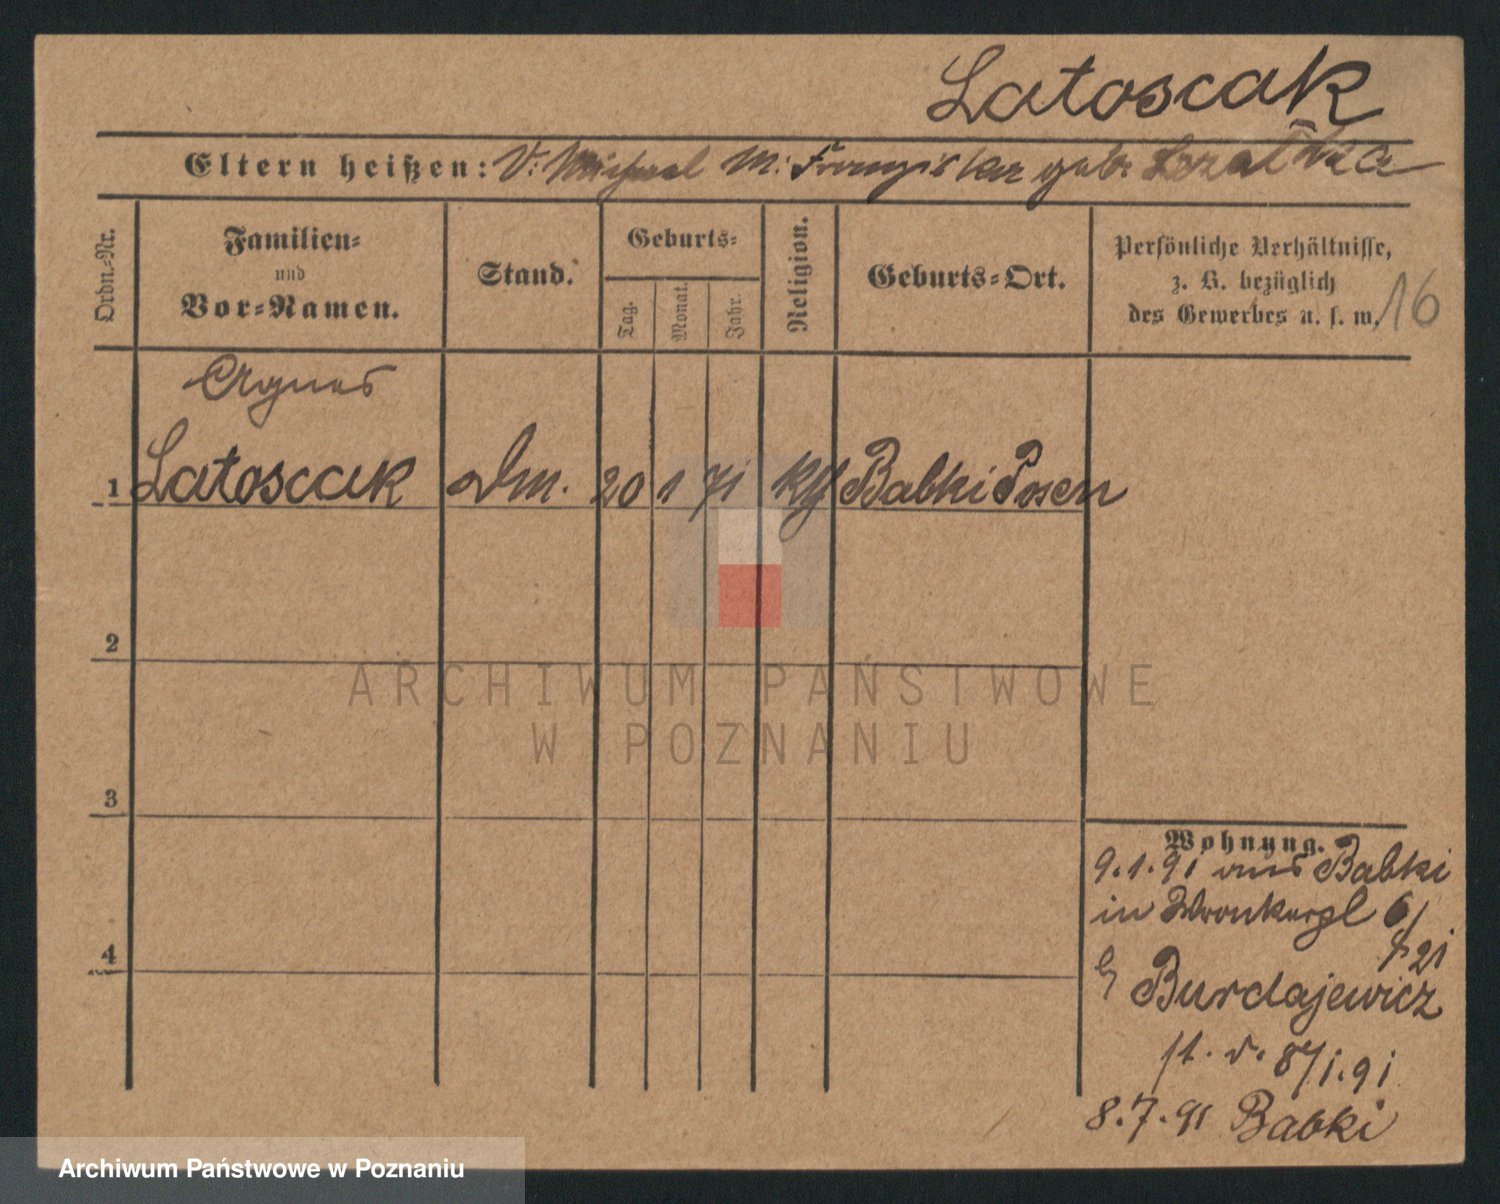 Latoscak
Eltern heißen: V: Michael M: Franziska geb.
Ordn.-Nr.
Familien-
und
Vor-Namen.
Stand.
Geburts-
Tag.
Monat.
Jahr.
Religion.
Geburts-Ort.
Persönliche Verhältnisse,
z. B. bezüglich
des Gewerbes u. s. w.
16
Agnes
1 Latoscak Dm. 20 1 71 kth Babki Posen
2
3
4
Wohnung.
9.1.91 aus Babki
in Wronkerpl 6/
21
b/ Burdajewicz
st. v. 8/1.91
8.7.91 Babki
ARCHIWUM PAŃSTWOWE
W POZNANIU
Archiwum Państwowe w Poznaniu